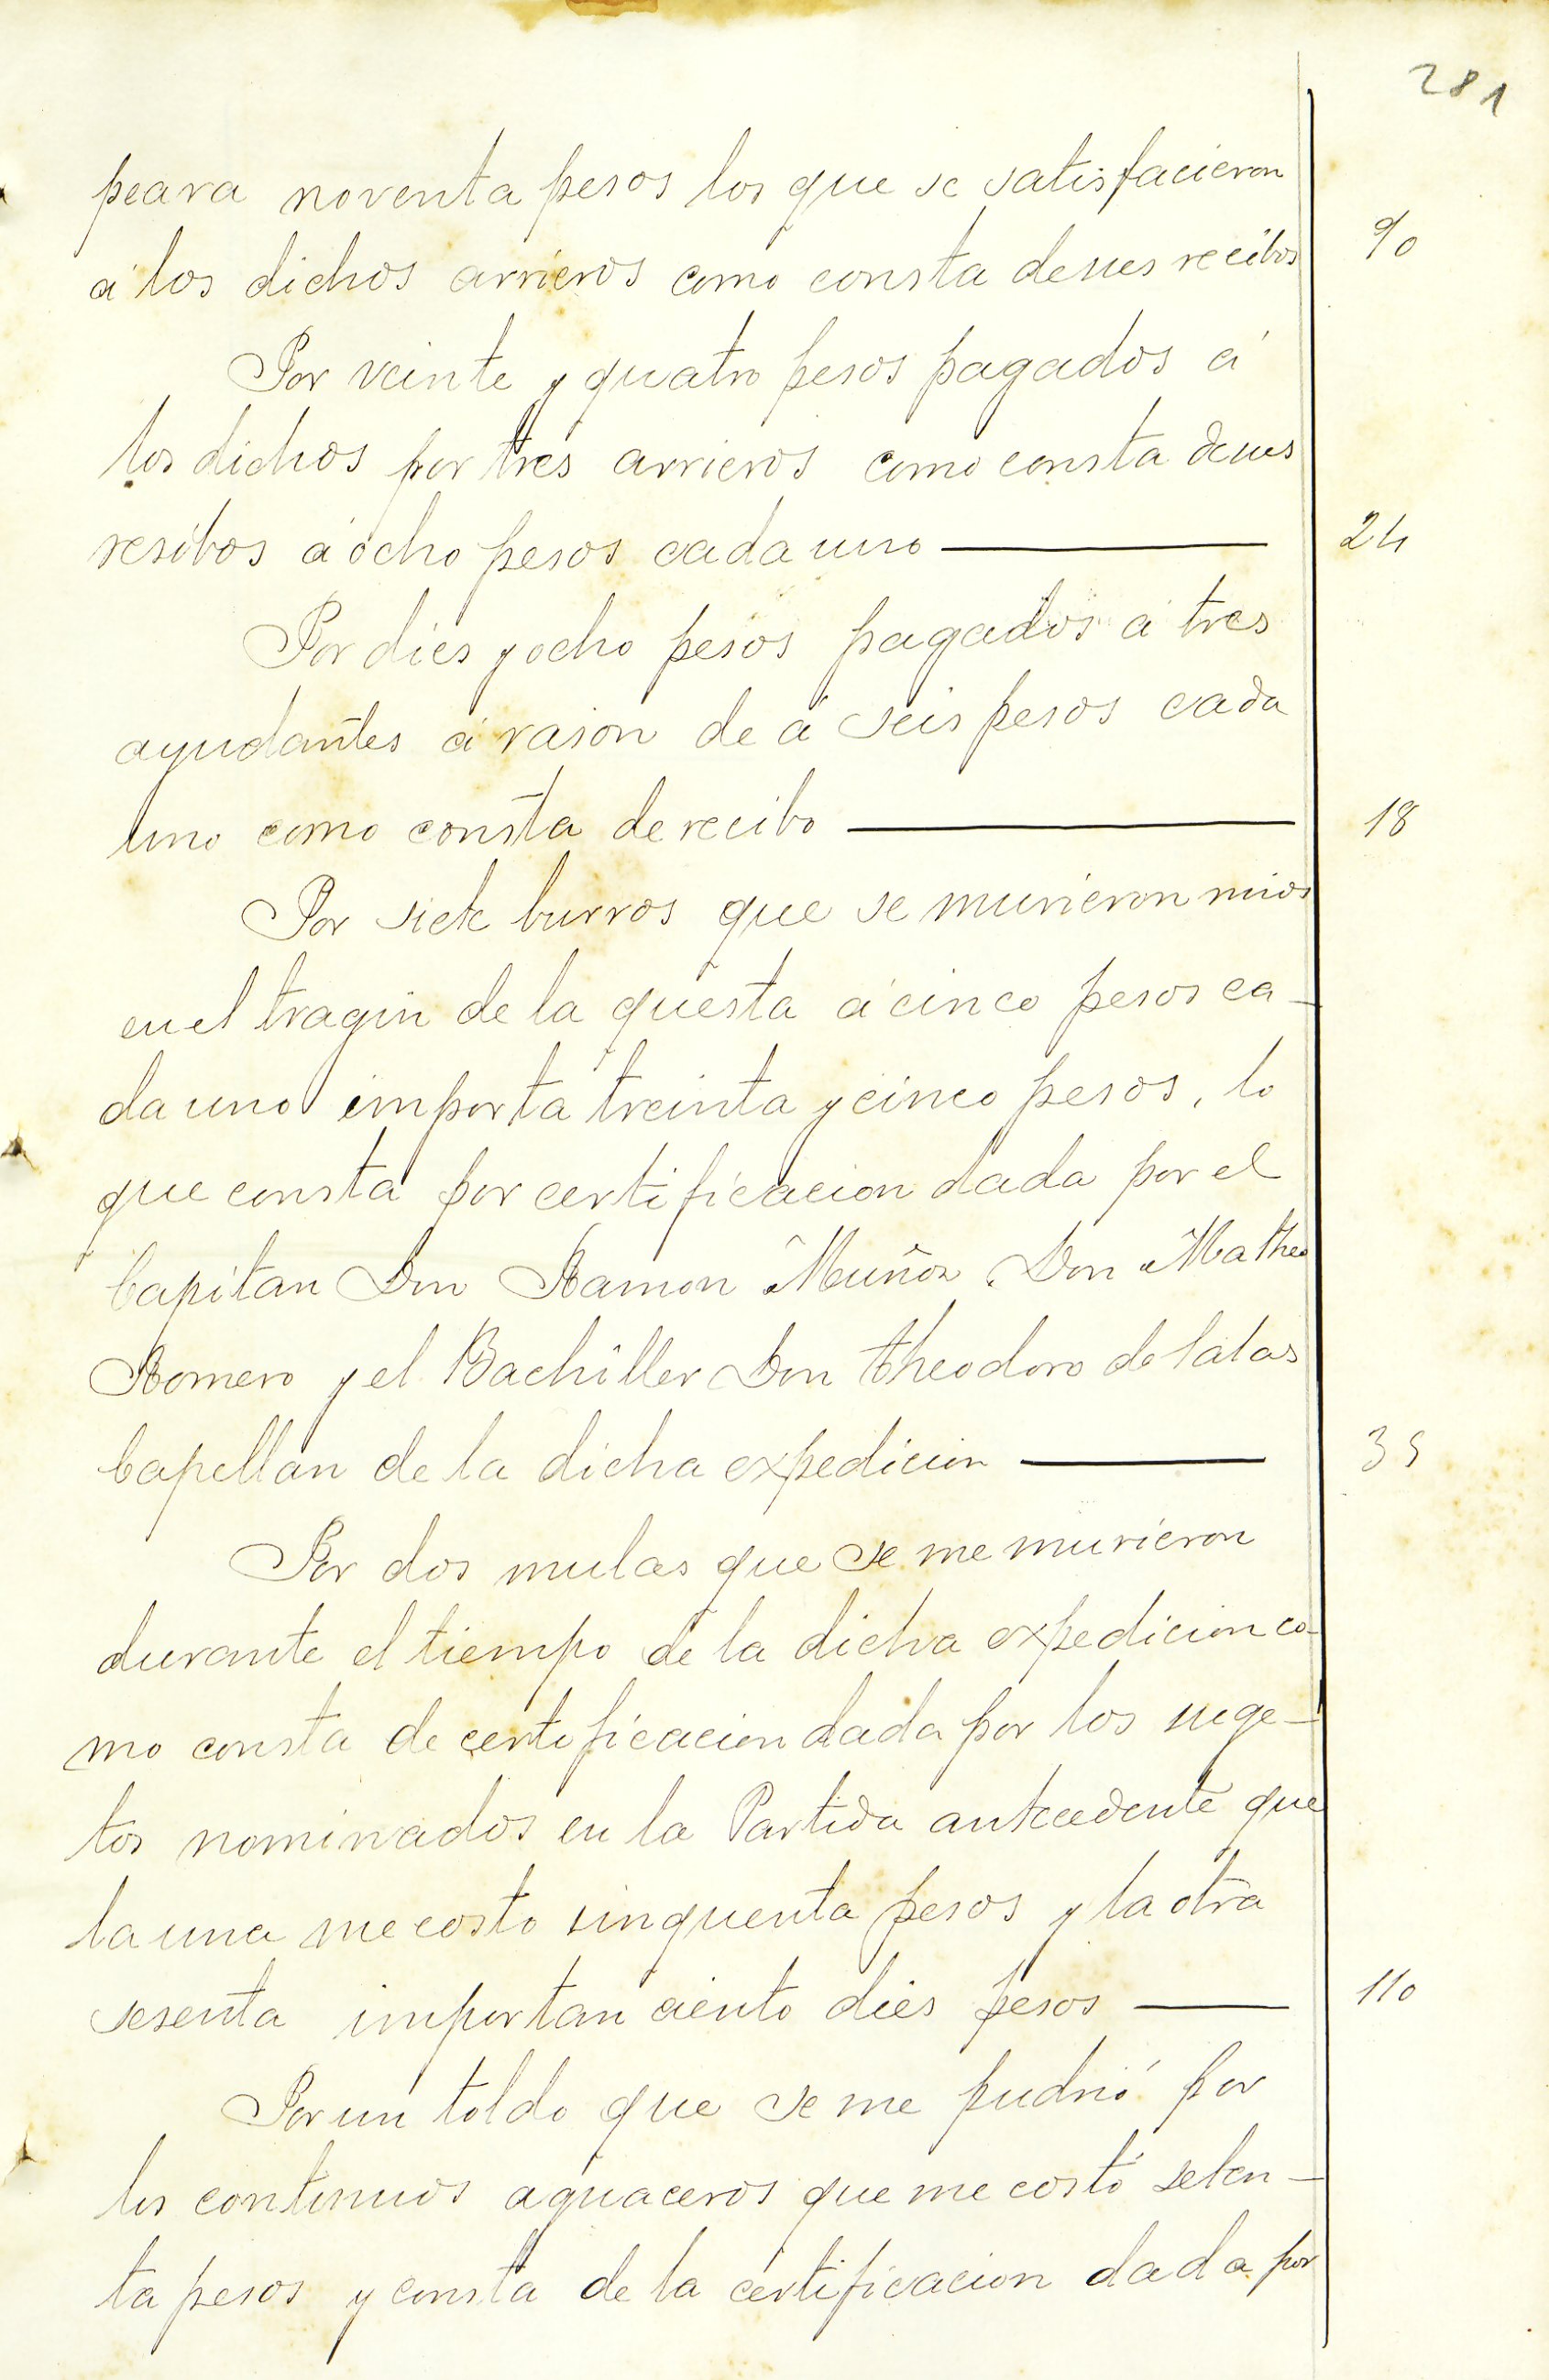 281
peara noventa pesos los que se satisfacieron
á los dichos arrieros como consta desus recibos 90
Por veinte y quatro pesos pagados á
los dichos por tres arrieros como consta desus
resibos á ocho pesos cada uno — 24
Por dies y ocho pesos pagados á tres
ayudantes á rason de á seis pesos cada
uno como consta de recibo — 18
Por siete burros que se murieron mios
en el tragin de la questa á cinco pesos ca-
da uno importa treinta y cinco pesos, lo
que consta por certificacion dada por el
Capitan Don Ramon Muñoz Don Matheo
Romero y el Bachiller Don Theodoro de Salas
Capellan de la dicha expedicion — 35
Por dos mulas que se me murieron
durante el tiempo de la dicha expedicion co-
mo consta de certificacion dada por los suge-
tos nominados en la Partida antecedente que
la una me costo sinquenta pesos y la otra
sesenta importan ciento dies pesos — 110
Por un toldo que se me pudrió por
los continuos aguaceros que me costó seten-
ta pesos y consta de la certificacion dada por